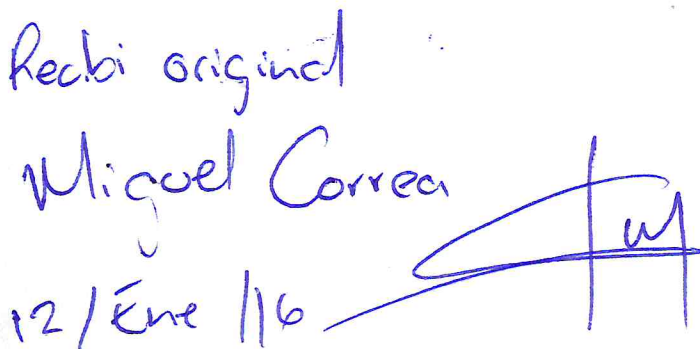 Recibi original
Miguel Correa
12/Ene/16